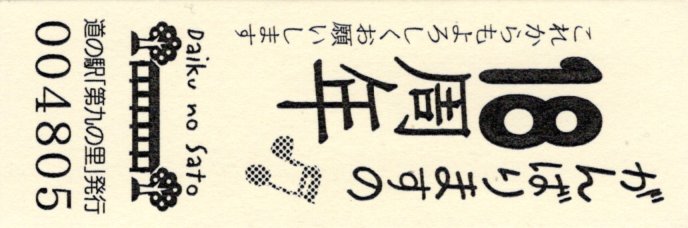 がんばりますの
18周年
これからもよろしくお願いします
Daiku no Sato
道の駅「第九の里」発行
004805